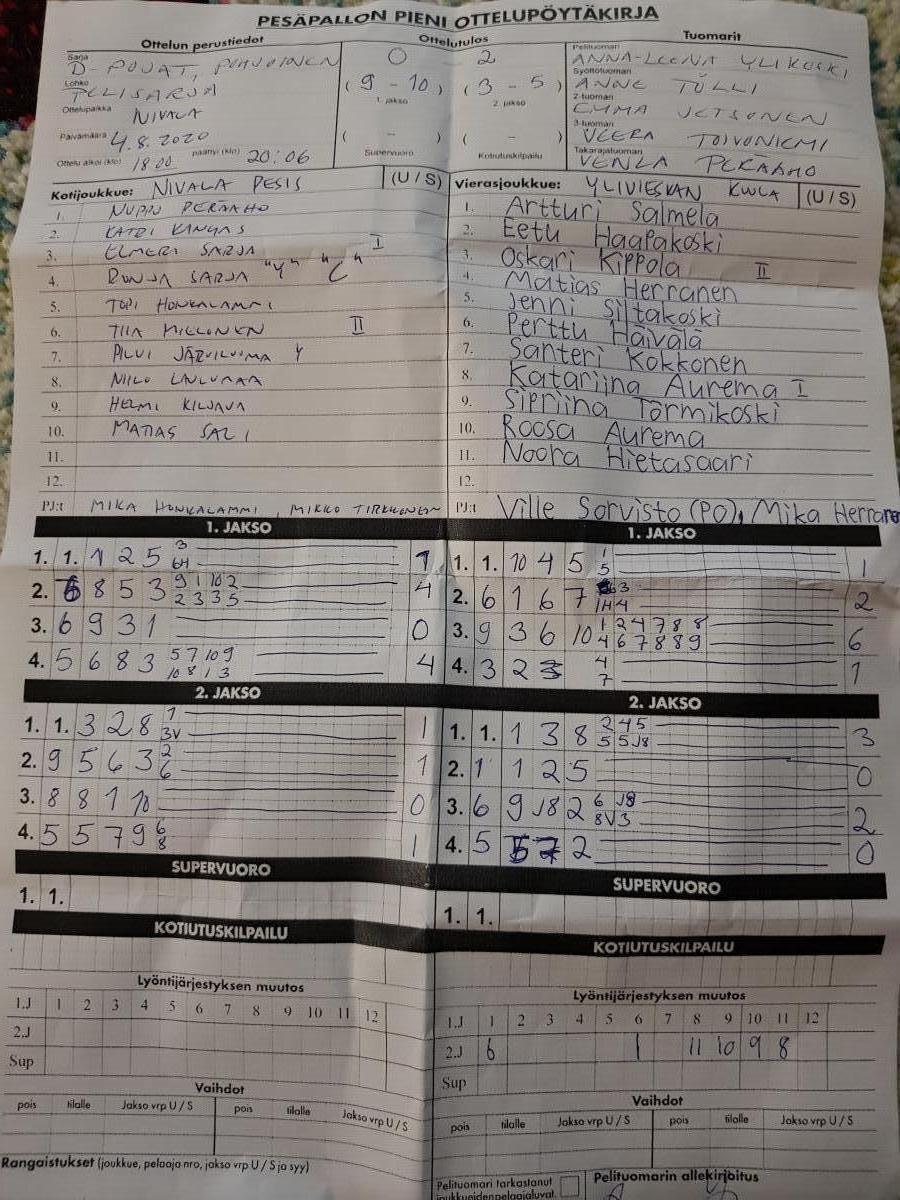 PESÄPALLON PIENI OTTELUPÖYTÄKIRJA
Ottelun perustiedot
Sarja
D-POJAT, POHJOINEN
Lohko
TELISARJA
Ottelupaikka
NIVALA
Päivämäärä
4.8.2020
Ottelu alkoi (klo) 18.00 päättyi (klo) 20:06
Ottelutulos
0 - 2
( 9 - 10 ) ( 3 - 5 )
1. jakso 2. jakso
( - ) ( - )
Supervuoro Kotiutuskilpailu
Tuomarit
Pelituomari
ANNA-LEENA YLIKOSKI
Syöttötuomari
ANNE TÖLLI
2-tuomari
EMMA
3-tuomari
VEERA TOIVONIEMI
Takarajatuomari
VENLA PERÄAHO
Kotijoukkue: NIVALA PESIS (U / S)
1. NUPPU PERÄAHO
2. KATRI KANGAS
3. ELMERI SARJA I
4. RONJA SARJA "Y" "C"
5. TOPI HONKALAMMI
6. TIIA MIELONEN II
7. PILVI JÄRVILUOMA Y
8. NIILO LAULUMAA
9. HELMI KILJAVA
10. MATIAS SALI
11.
12.
PJ:t MIKA HONKALAMMI, MIKKO TIRKKONEN
Vierasjoukkue: YLIVIESKAN KUULA (U / S)
1. Artturi Salmela
2. Eetu Haapakoski
3. Oskari Kippola II
4. Matias Herranen
5. Jenni Siltakoski
6. Perttu Häivälä
7. Santeri Kokkonen
8. Katariina Aurema I
9. Sipriina Törmikoski
10. Roosa Aurema
11. Noora Hietasaari
12.
PJ:t Ville Sorvisto (PO), Mika Herranen
1. JAKSO
1. 1. 1 2 5 3 1
2. 6 8 5 3 9 1 10 2 4
2 3 3 5
3. 6 9 3 1 0
4. 5 6 8 3 5 7 10 9 4
10 8 1 3
2. JAKSO
1. 1. 3 2 8 1 1
3V
2. 9 5 6 3 2 1
6
3. 8 8 1 10 0
4. 5 5 7 9 6 1
8
SUPERVUORO
1. 1.
KOTIUTUSKILPAILU
Lyöntijärjestyksen muutos
1.J 1 2 3 4 5 6 7 8 9 10 11 12
2.J
Sup
Vaihdot
pois tilalle Jakso vrp U / S pois tilalle Jakso vrp U / S
Rangaistukset (joukkue, pelaaja nro, jakso vrp U / S ja syy)
1. JAKSO
1. 1. 10 4 5 1 1
5
2. 6 1 6 7 3 2
4
3. 9 3 6 10 1 2 4 7 8 8 6
4 6 7 8 8 9
4. 3 2 3 4 1
7
2. JAKSO
1. 1. 1 3 8 2 4 5 3
5 5 J8
2. 1 1 2 5 0
3. 6 9 J8 2 6 J8 2
8V 3
4. 5 2 0
SUPERVUORO
1. 1.
KOTIUTUSKILPAILU
Lyöntijärjestyksen muutos
1.J 1 2 3 4 5 6 7 8 9 10 11 12
2.J 6 1 11 10 9 8
Sup
Vaihdot
pois tilalle Jakso vrp U / S pois tilalle Jakso vrp U / S
Pelituomari tarkastanut
joukkueidenpelaajaluvat.
Pelituomarin allekirjoitus